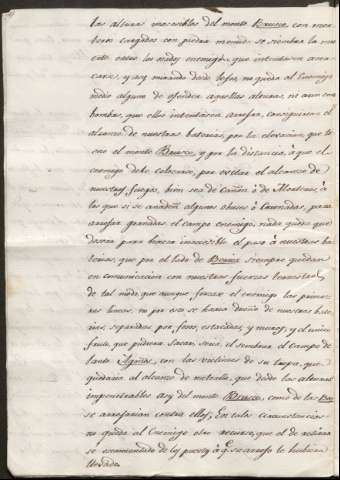 las alturas inaccesibles del monte Brusco con mor-
teros cargados con piedra menuda se siembra la mu-
erte entre los nadies enemigos, que intentasen acer-
carse, y aun mirando desde lejos, no queda al Enemigo
medio alguno de ofender aquellas alturas, ni aun con
bombas, que ellos intentasen arrojar, conseguirian el
alcance de nuestras baterias, por la elevacion, que ti-
ene el monte Brusco, y por la distancia, à que el
enemigo debe colocarse, por evitar el alcance de
nuestros fuegos, bien sea de Cañon ò de Mortero, à
los que si se añaden algunos obuses ò Carronadas, para
arrojar granadas al campo enemigo, nada queda que
desear para hacer inaccesible el paso à nuestras ba-
terias, que por el lado de siempre quedan
en comunicacion con nuestras fuerzas terrestres
de tal modo, que aunque forzase el enemigo las prime-
ras lineas, no por eso se haria dueño de nuestras bate-
rias, separadas por fosos, estacadas, y muros, y el unico
fruto, que pudieran sacar, seria, el sembrar el Campo de
tanto con las victimas de su tropa, que
quedaria al alcance de metralla, que desde las alturas
impenetrables asi del monte Brusco, como de la
se arrojarian contra ellos; En tales circunstancias
no queda al Enemigo otro recurso, que el de retirarse
escarmentado de los puestos à qe. se arrojo te hubiera
llevado.